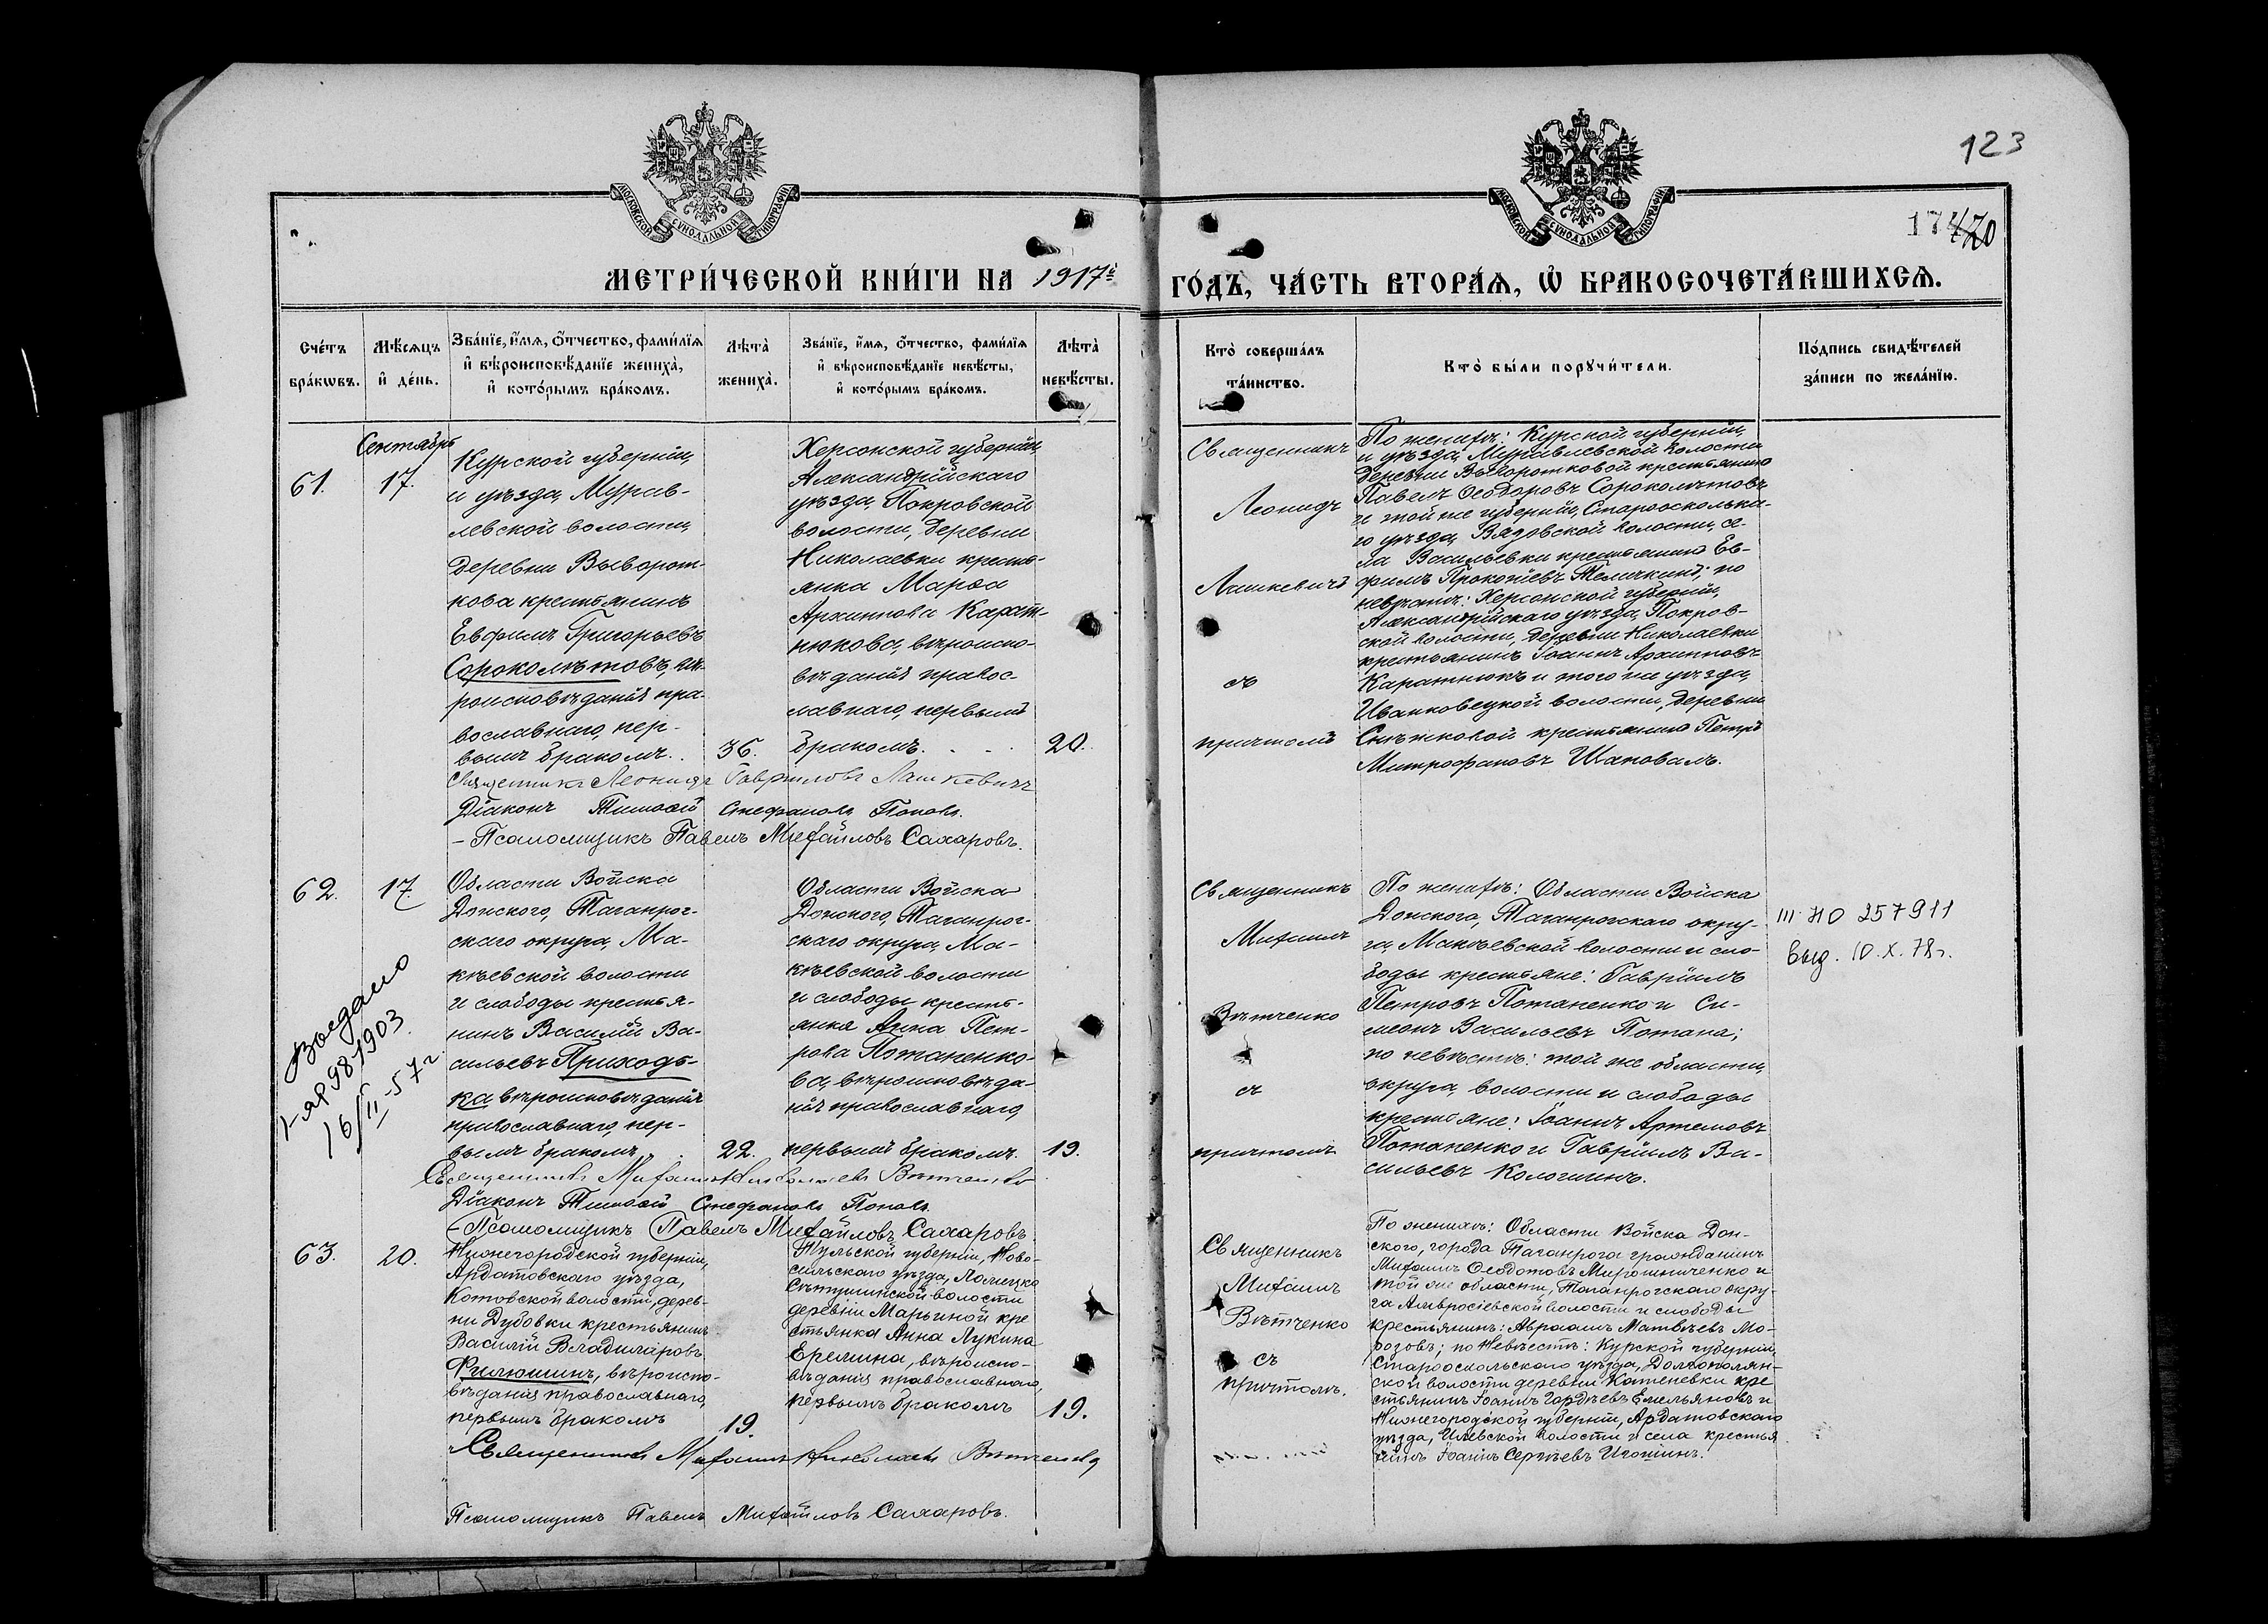 123
МОСКОВСКОЙ СѴНОДАЛЬНОЙ ТИПОГРАФІИ
МОСКОВСКОЙ СѴНОДАЛЬНОЙ ТИПОГРАФІИ
МЕТРИ́ЧЕСКОЙ КНИ́ГИ НА 1917й ГО́ДЪ, ЧА́СТЬ ВТОРА́Ѧ, Ѡ҆ БРАКОСОЧЕТА́ВШИХСѦ.
Сче́тъ бра́кѡвъ.
Мѣ́сѧцъ и҆ де́нь.
Зва́нїе, и҆́мѧ, ѻ҆́тчество, фами́лїѧ
и҆ вѣроисповѣ́данїе жениха̀,
и҆ кото́рымъ бра́комъ.
Лѣта̀ жениха̀.
Зва́нїе, и҆́мѧ, ѻ҆́тчество, фами́лїѧ
и҆ вѣроисповѣ́данїе невѣ́сты,
и҆ кото́рымъ бра́комъ.
Лѣта̀ невѣ́сты.
Кто̀ соверша́лъ та́инство.
Кто̀ бы́ли порꙋчи́тели.
По́дпись свидѣ́телей
за́писи по жела́нїю.
Сентябрь
61.
17.
Курской губерніи,
и уѣзда, Мурав-
левской волости,
деревни Выворот-
кова крестьянинъ
Евфимъ Григорьевъ
Сороколѣтовъ, вѣ-
роисповѣданія пра-
вославнаго, пер-
вымъ бракомъ.
36.
Херсонской губерніи,
Александрійскаго
уѣзда, Покровской
волости, деревни
Николаевки кресть-
янка Марѳа
Архиппова Карат-
нюкова, вѣроиспо-
вѣданія правос-
лавнаго, первымъ
бракомъ.
20.
Священникъ
Леонидъ
Лашкевичъ
съ
причтомъ
По женихѣ: Курской губерніи,
и уѣзда, Муравлевской волости
деревни Выворотковой крестьянинъ
Павелъ Ѳеодоровъ Сороколѣтовъ
и той же губерніи, Старооскольска-
го уѣзда, Вязовской волости, се-
ла Васильевки крестьянинъ Ев-
фимъ Прокопіевъ Теличкинъ; по
невѣстѣ: Херсонской губерніи,
Александрійскаго уѣзда, Покров-
ской волости, деревни Николаевки
крестьянинъ Іоаннъ Архипповъ
Каратнюкъ и того же уѣзда,
Иванковецкой волости, деревни
Снѣжковой крестьянинъ Петръ
Митрофановъ Шаповалъ.
Священникъ Леонидъ Гавриловъ Лашкевичъ
Діаконъ Тимоѳей Стефановъ Поповъ.
– Псаломщикъ Павелъ Михайловъ Сахаровъ.
62.
17.
Области Войска
Донского, Таганрог-
скаго округа, Ма-
кѣевской волости
и слободы крестья-
нинъ Василій Ва-
сильевъ Приходь-
ка вѣроисповѣданія
православнаго, пер-
вымъ бракомъ
22.
Области Войска
Донского, Таганрог-
скаго округа, Ма-
кѣевской волости
и слободы кресть-
янка Анна Пет-
рова Потапенко-
ва, вѣроисповѣда-
нія православнаго,
первымъ бракомъ.
19.
Священникъ
Михаилъ
Вѣтченко
съ
причтомъ
По женихѣ: Области Войска
Донского, Таганрогскаго окру-
га, Макѣевской волости и сло-
боды крестьяне: Гавріилъ
Петровъ Потапенко и Си-
меонъ Васильевъ Потапа;
по невѣстѣ: той же области,
округа, волости и слободы
крестьяне: Іоаннъ Артемовъ
Потапенко и Гавріилъ Ва-
сильевъ Кологнинъ.
III НО 257911
выд. 10.X.78г.
Выдано
I-ЯЯ 981903
16/II-57г.
Священникъ Михаилъ Николаевъ Вѣтченко
Діаконъ Тимоѳей Стефановъ Поповъ
– Псаломщикъ Павелъ Михайловъ Сахаровъ
63.
20.
Нижегородской губерніи,
Ардатовскаго уѣзда,
Котовской волости, дерев-
ни Дубовки крестьянинъ
Василій Владиміровъ
Филюшинъ, вѣроиспо-
вѣданія православнаго,
первымъ бракомъ
19.
Тульской губерніи, Ново-
сильскаго уѣзда,
волости
деревни Марьиной кре
стьянка Анна Лукина
Еремина, вѣроиспо-
вѣданія православнаго,
первымъ бракомъ
19.
Священникъ
Михаилъ
Вѣтченко
съ
причтомъ.
По женихѣ: Области Войска Дон-
ского, города Таганрога гражданинъ
Михаилъ Ѳеодотовъ Мирошниченко и
той же области, Таганрогскаго окру-
га Амвросіевской волости и слободы
крестьянинъ: Авраамъ Матвѣевъ Мо-
розовъ; по невѣстѣ: Курской губерніи,
Старооскольскаго уѣзда, Долгополян-
ской волости деревни Катеневки кре
стьянинъ Іоаннъ Гордѣевъ Емельяновъ и
Нижегородской губерніи, Ардатовскаго
уѣзда, Илевской волости и села крестья
нинъ Іоаннъ Сергѣевъ Игошинъ.
Священникъ Михаилъ Николаевъ Вѣтченко
Псаломщикъ Павелъ Михайловъ Сахаровъ.